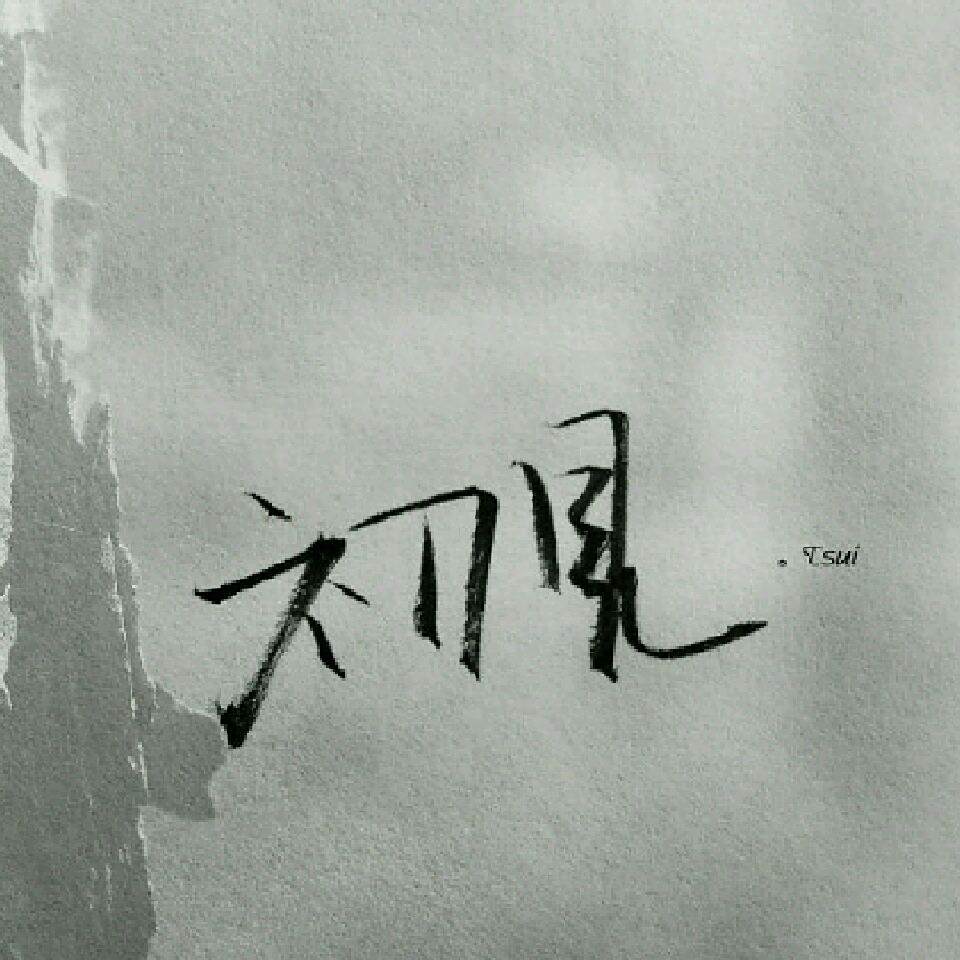 初見
. Tsui